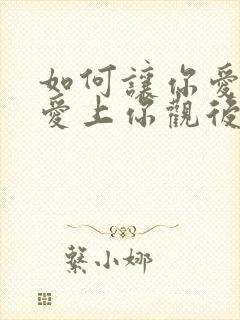 如何讓你愛
愛上你觀後
繫小娜